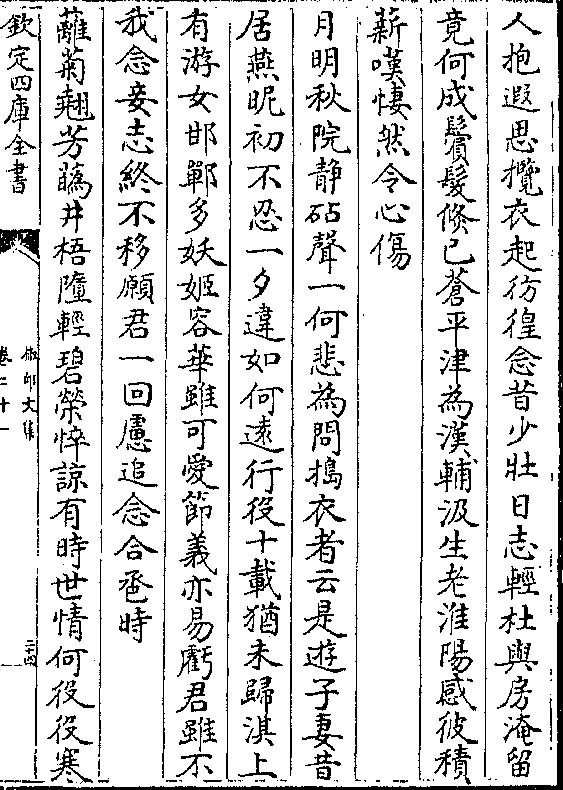 人抱遐思攬衣起彷徨念昔少壯日志輕杜與房淹留
竟何成鬢髮倏已蒼平津為漢輔汲生老淮陽感彼積
薪嘆悽然令心傷
月明秋院静砧聲一何悲為問搗衣者云是遊子妻昔
居燕昵初不忍一夕違如何逺行役十載猶未歸淇上
有游女邯鄲多妖姬容華雖可愛節義亦易虧君雖不
我念妾志終不移願君一回慮追念合巹時
蘺菊翹芳蘤井梧墮輕碧榮悴諒有時世情何役役寒
欽定四庫全書
文集
卷二十一
二十四